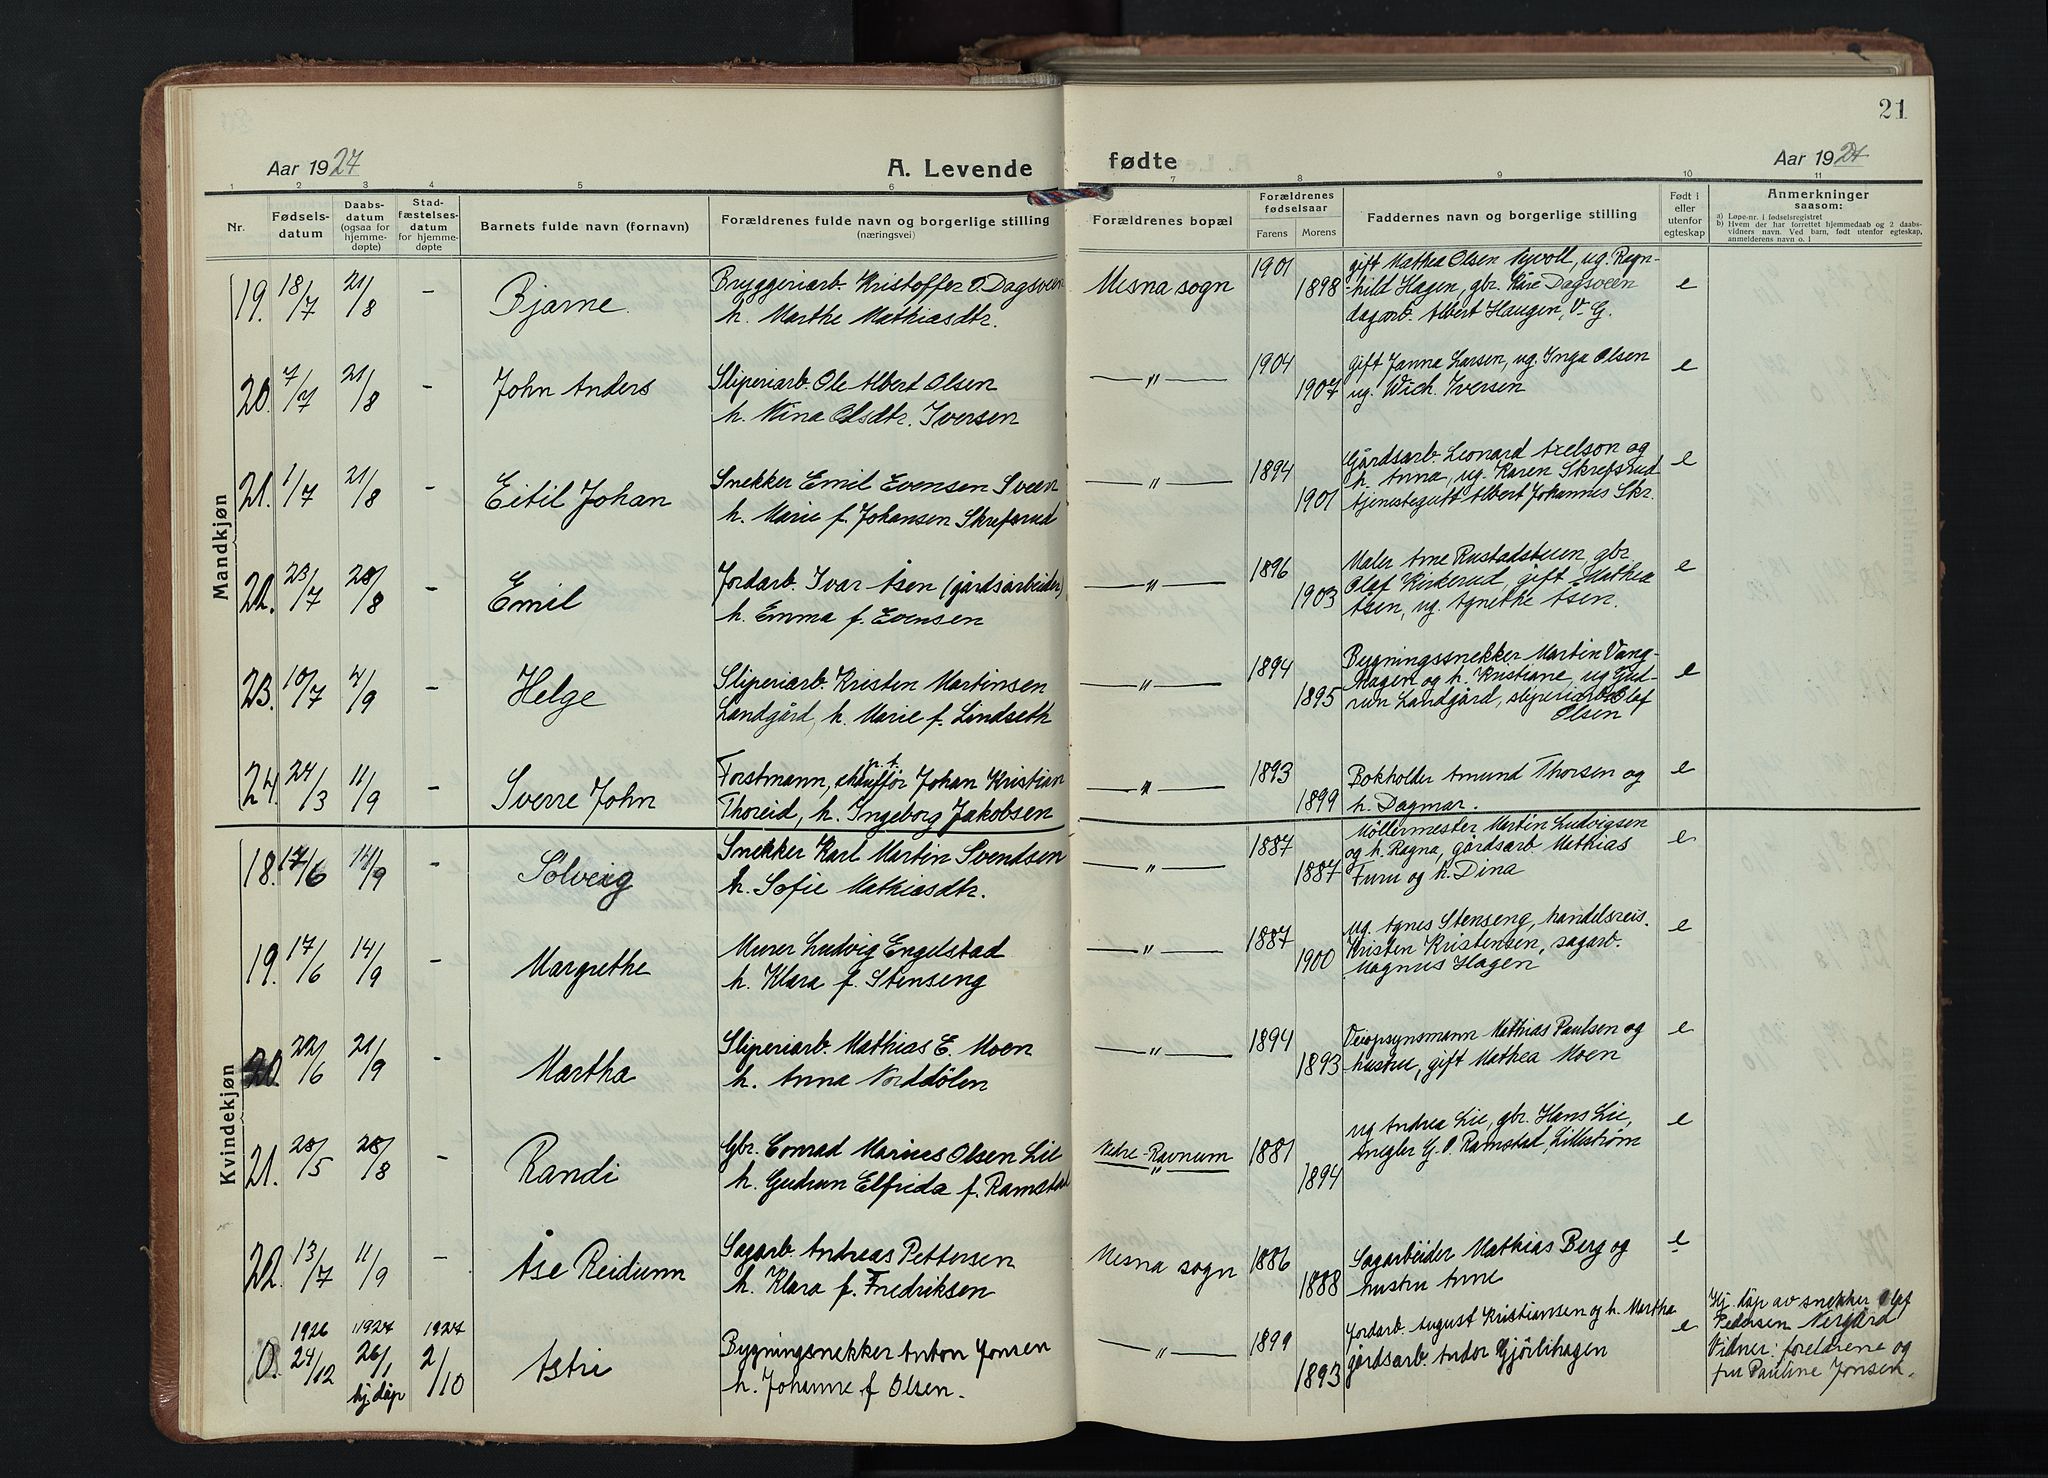 21
Aar 1927
A. Levende
fødte
Aar 1927
1 2 3 4 5 6 7 8 9 10 11
Nr.
Fødselsdatum
Daabsdatum
(ogsaa for
hjemmedøpte)
Stadfæstelsesdatum
for hjemmedøpte
Barnets fulde navn (fornavn)
Forældrenes fulde navn og borgerlige stilling
(næringsvei)
Forældrenes bopæl
Forældrenes
fødselsaar
Farens Morens
Faddernes navn og borgerlige stilling
Født i
eller
utenfor
egteskap
Anmerkninger
saasom:
a) Løpe-nr. i fødselsregistret
b) Hvem der har forrettet hjemmedaab og 2 daabsvidners navn. Ved barn, født utenfor egteskap,
anmelderens navn o. l
Mandkjøn
19. 18/7 21/8 - Bjarne. Bryggeriarb. Kristoffer O. Dagsveen Mesna sogn 1901 gift Mathea Olsen Nyvoll, ug. Ragn-
h. Marthe Mathiasdtr. 1898 -hild Hagen, gbr. Kåre Dagsveen e
dagarb. Albert Haugen, V. G.
20. 7/7 21/8 - John Anders Sliperiarb. Ole Albert Olsen —"— 1904 gift Janna Larsen, ug. Inga Olsen e
h. Nina Olsdtr. Iversen 1907 ug. Wich. Iversen
21. 1/7 21/8 - Eitil Johan Snekker Emil Evensen Sveen —"— 1894 Gårdsarb. Leonard Axelson og e
h. Marie f. Johansen Skrefsrud 1901 h. Anna, ug. Karen Skrefsrud
tjenestegutt Albert Johannes Skr.
22. 23/7 28/8 - Emil Jordarb. Ivar Åsen (gårdsarbeider) —"— 1896 Maler Arne Rustadstuen, gbr. e
h. Emma f. Evensen 1903 Olaf Kirkerud, gift Mathea
Åsen, ug. Agnethe Åsen.
23. 10/7 4/9 - Helge Sliperiarb. Kristen Martinsen —"— 1894 Bygningssnekker Martin Vang- e
Landgård, h. Marie f. Lindseth 1895 Hagen og h. Kristiane, ug Gud-
run Landgård, sliperiarb. Olaf
Olsen
24. 24/3 11/9 - Sverre John Forstmann, p.t. chauffør Johan Kristian —"— 1893 Bokholder Amund Thorsen og e
Thoreid, h. Ingeborg Jakobsen 1899 h. Dagmar.
Kvindekjøn
18. 17/6 14/9 - Solveig Snekker Karl Martin Svendsen —"— 1887 Møllermester Martin Ludvigsen e
h. Sofie Mathiasdtr. 1887 og h. Ragna, gårdsarb. Mathias
Furu og h. Dina
19. 17/6 14/9 - Margrethe Murer Ludvig Engelstad —"— 1887 ug. Agnes Stenseng, handelsreis. e
h. Klara f. Stenseng 1900 Kristen Kristensen, sagarb.
Magnus Hagen
20. 22/6 21/9 - Martha Sliperiarb. Mathias E. Moen —"— 1894 Veiopsynsmann Mathias Paulsen og e
h. Anna Norddølen 1893 hustru, gift Mathea Moen
21. 28/5 28/8 - Randi Gbr. Conrad Marius Olsen Lie Nedre-Ravnum 1881 ug Andrea Lie, gbr. Hans Lie, e
h. Gudrun Elfrida f. Ramstad " 1894 snegler G. O. Ramstad, Lillestrøm
22. 13/7 11/9 - Åse Reidunn Sagarb. Andreas Pettersen Mesna sogn 1886 Sagarbeider Mathias Berg og e
h. Klara f. Fredriksen 1888 hustru Anne
0. 1926 24/12 1927 26/1 hj.dåp 1927 2/10 Astri Bygningsnekker Anton Jonsen —"— 1899 Jordarb. August Kristiansen og h. Martha e Hj. dåp av snekker Olaf
h. Johanne f Olsen. 1893 gårdsarb. Andor Gjörlihagen Pedersen Nergård
Vidner: foreldrene og
fru Pauline Jonsen.